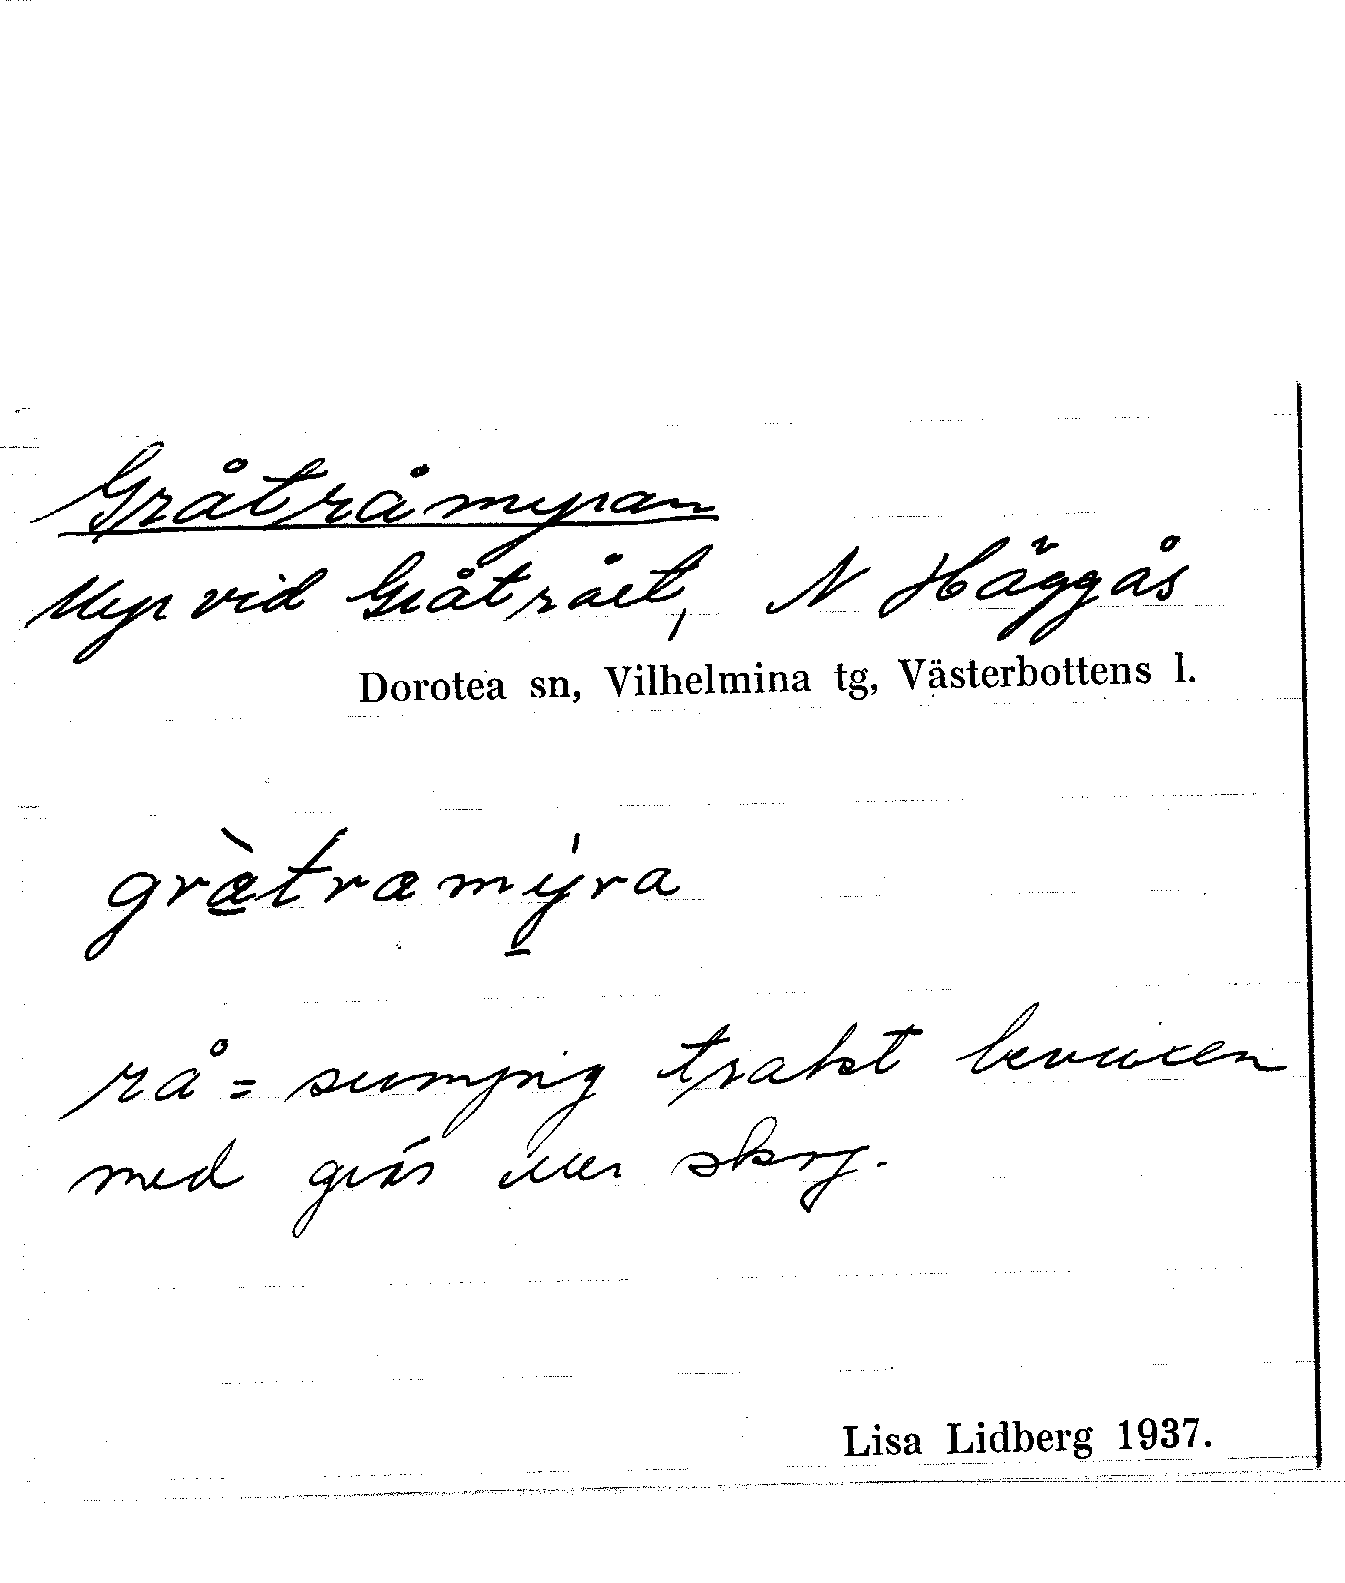 Gråtråmyran
Myr vid Gråtrået, N Häggås
Dorotea sn, Vilhelmina tg, Västerbottens l.
græ̀træmýra
rå = sumpig trakt bevuxen
med gräs eller skog.
Lisa Lidberg 1937.